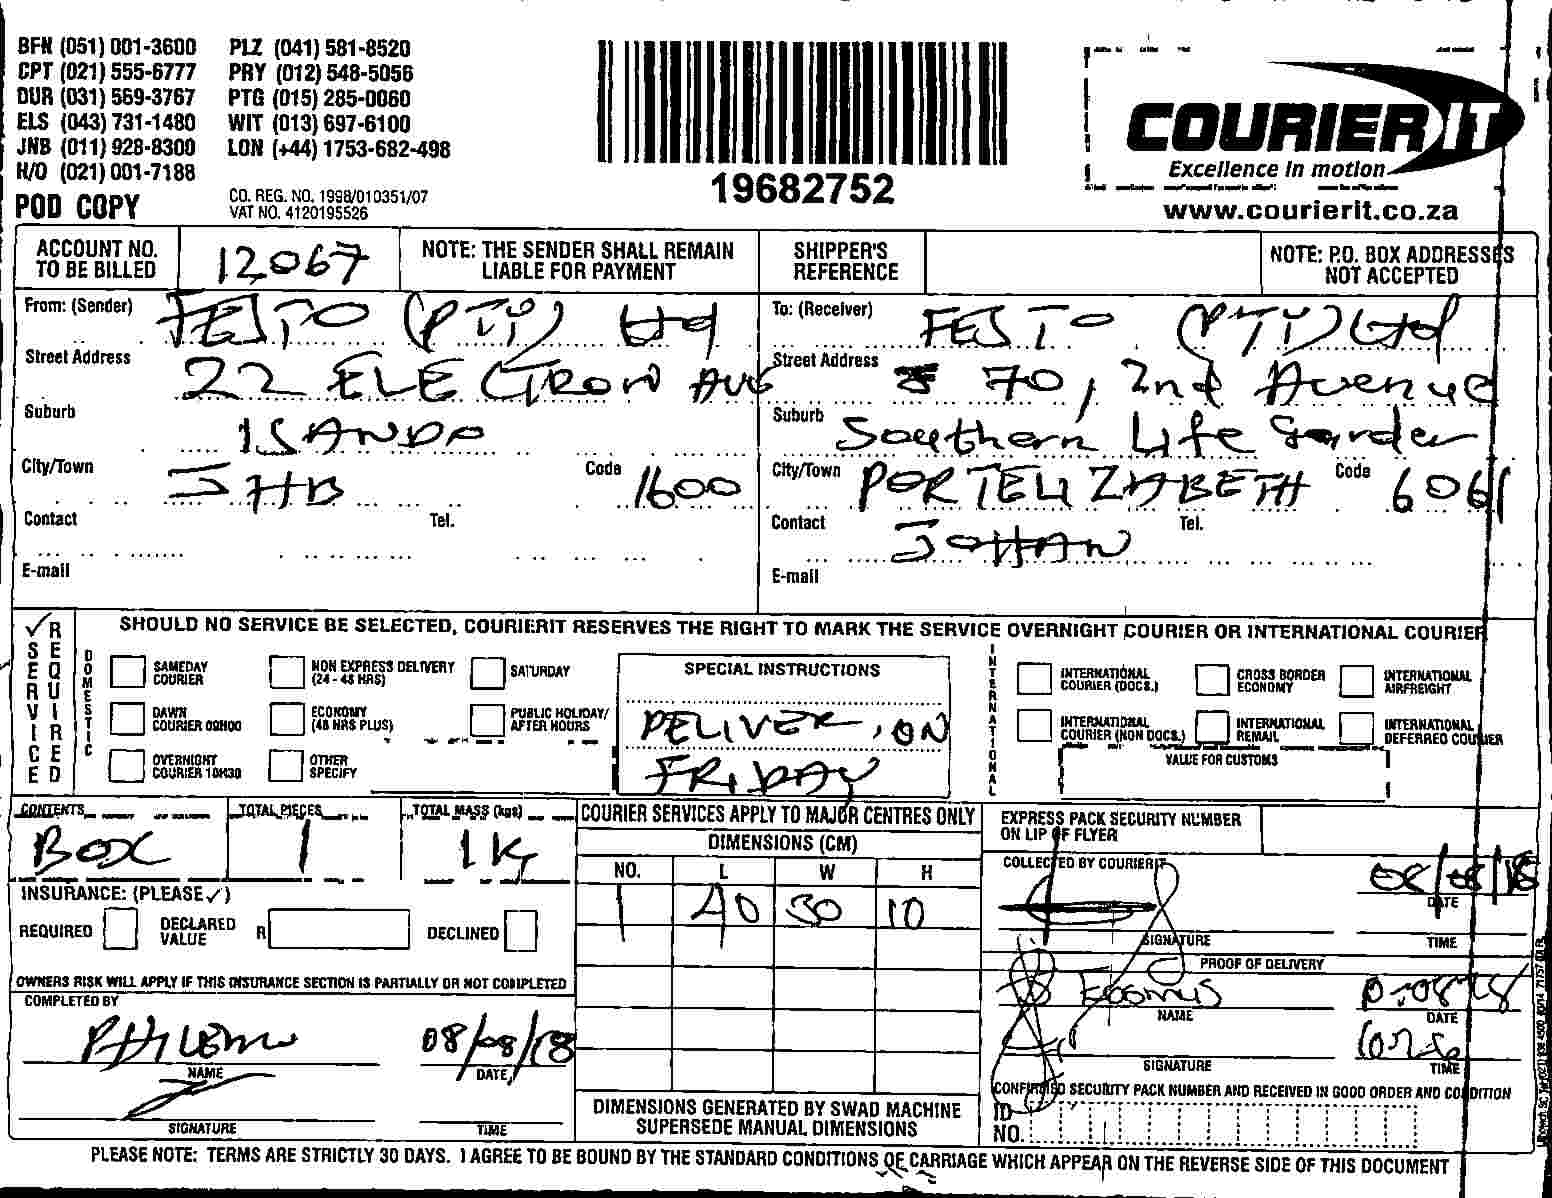 BFN (051) 001-3600 PLZ (041) 581-8520
CPT (021) 555-6777 PRY (012) 548-5056
DUR (031) 569-3767 PTG (015) 285-0060
ELS (043) 731-1480 WIT (013) 697-6100
JNB (011) 928-8300 LON (+44) 1753-682-498
H/O (021) 001-7188
POD COPY
CO. REG. NO. 1998/010351/07
VAT NO. 4120195526
19682752
COURIER IT
Excellence in motion
www.courierit.co.za
ACCOUNT NO. TO BE BILLED 12067
NOTE: THE SENDER SHALL REMAIN LIABLE FOR PAYMENT
SHIPPER'S REFERENCE
NOTE: P.O. BOX ADDRESSES NOT ACCEPTED
From: (Sender) FESTO (PTY) Ltd
Street Address 22 ELECTRON AVE
Suburb ISANDO
City/Town JHB Code 1600
Contact Tel.
E-mail
To: (Receiver) FESTO (PTY) Ltd
Street Address 70, 2nd Avenue
Suburb Southern Life Garden
City/Town PORT ELIZABETH Code 6061
Contact JOHAN Tel.
E-mail
✓ SERVICE REQUIRED
SHOULD NO SERVICE BE SELECTED, COURIERIT RESERVES THE RIGHT TO MARK THE SERVICE OVERNIGHT COURIER OR INTERNATIONAL COURIER
DOMESTIC
SAMEDAY COURIER
NON EXPRESS DELIVERY (24 - 48 HRS)
SATURDAY
DAWN COURIER 09H00
ECONOMY (48 HRS PLUS)
PUBLIC HOLIDAY/ AFTER HOURS
OVERNIGHT COURIER 10H30
OTHER SPECIFY
SPECIAL INSTRUCTIONS
DELIVER ON
FRIDAY
INTERNATIONAL
INTERNATIONAL COURIER (DOCS.)
CROSS BORDER ECONOMY
INTERNATIONAL AIRFREIGHT
INTERNATIONAL COURIER (NON DOCS.)
INTERNATIONAL REMAIL
INTERNATIONAL DEFERRED COURIER
VALUE FOR CUSTOMS
CONTENTS BOX
TOTAL PIECES 1
TOTAL MASS (kgs) 1 Kg
COURIER SERVICES APPLY TO MAJOR CENTRES ONLY
DIMENSIONS (CM)
NO. L W H
1 40 30 10
DIMENSIONS GENERATED BY SWAD MACHINE SUPERSEDE MANUAL DIMENSIONS
INSURANCE: (PLEASE ✓)
REQUIRED DECLARED VALUE R DECLINED
OWNERS RISK WILL APPLY IF THIS INSURANCE SECTION IS PARTIALLY OR NOT COMPLETED
COMPLETED BY
08/08/18
NAME DATE
SIGNATURE TIME
EXPRESS PACK SECURITY NUMBER ON LIP OF FLYER
COLLECTED BY COURIERIT
08/08/18
DATE
SIGNATURE TIME
PROOF OF DELIVERY
NAME DATE
SIGNATURE TIME
CONFIRMED SECURITY PACK NUMBER AND RECEIVED IN GOOD ORDER AND CONDITION
ID NO.
PLEASE NOTE: TERMS ARE STRICTLY 30 DAYS. I AGREE TO BE BOUND BY THE STANDARD CONDITIONS OF CARRIAGE WHICH APPEAR ON THE REVERSE SIDE OF THIS DOCUMENT